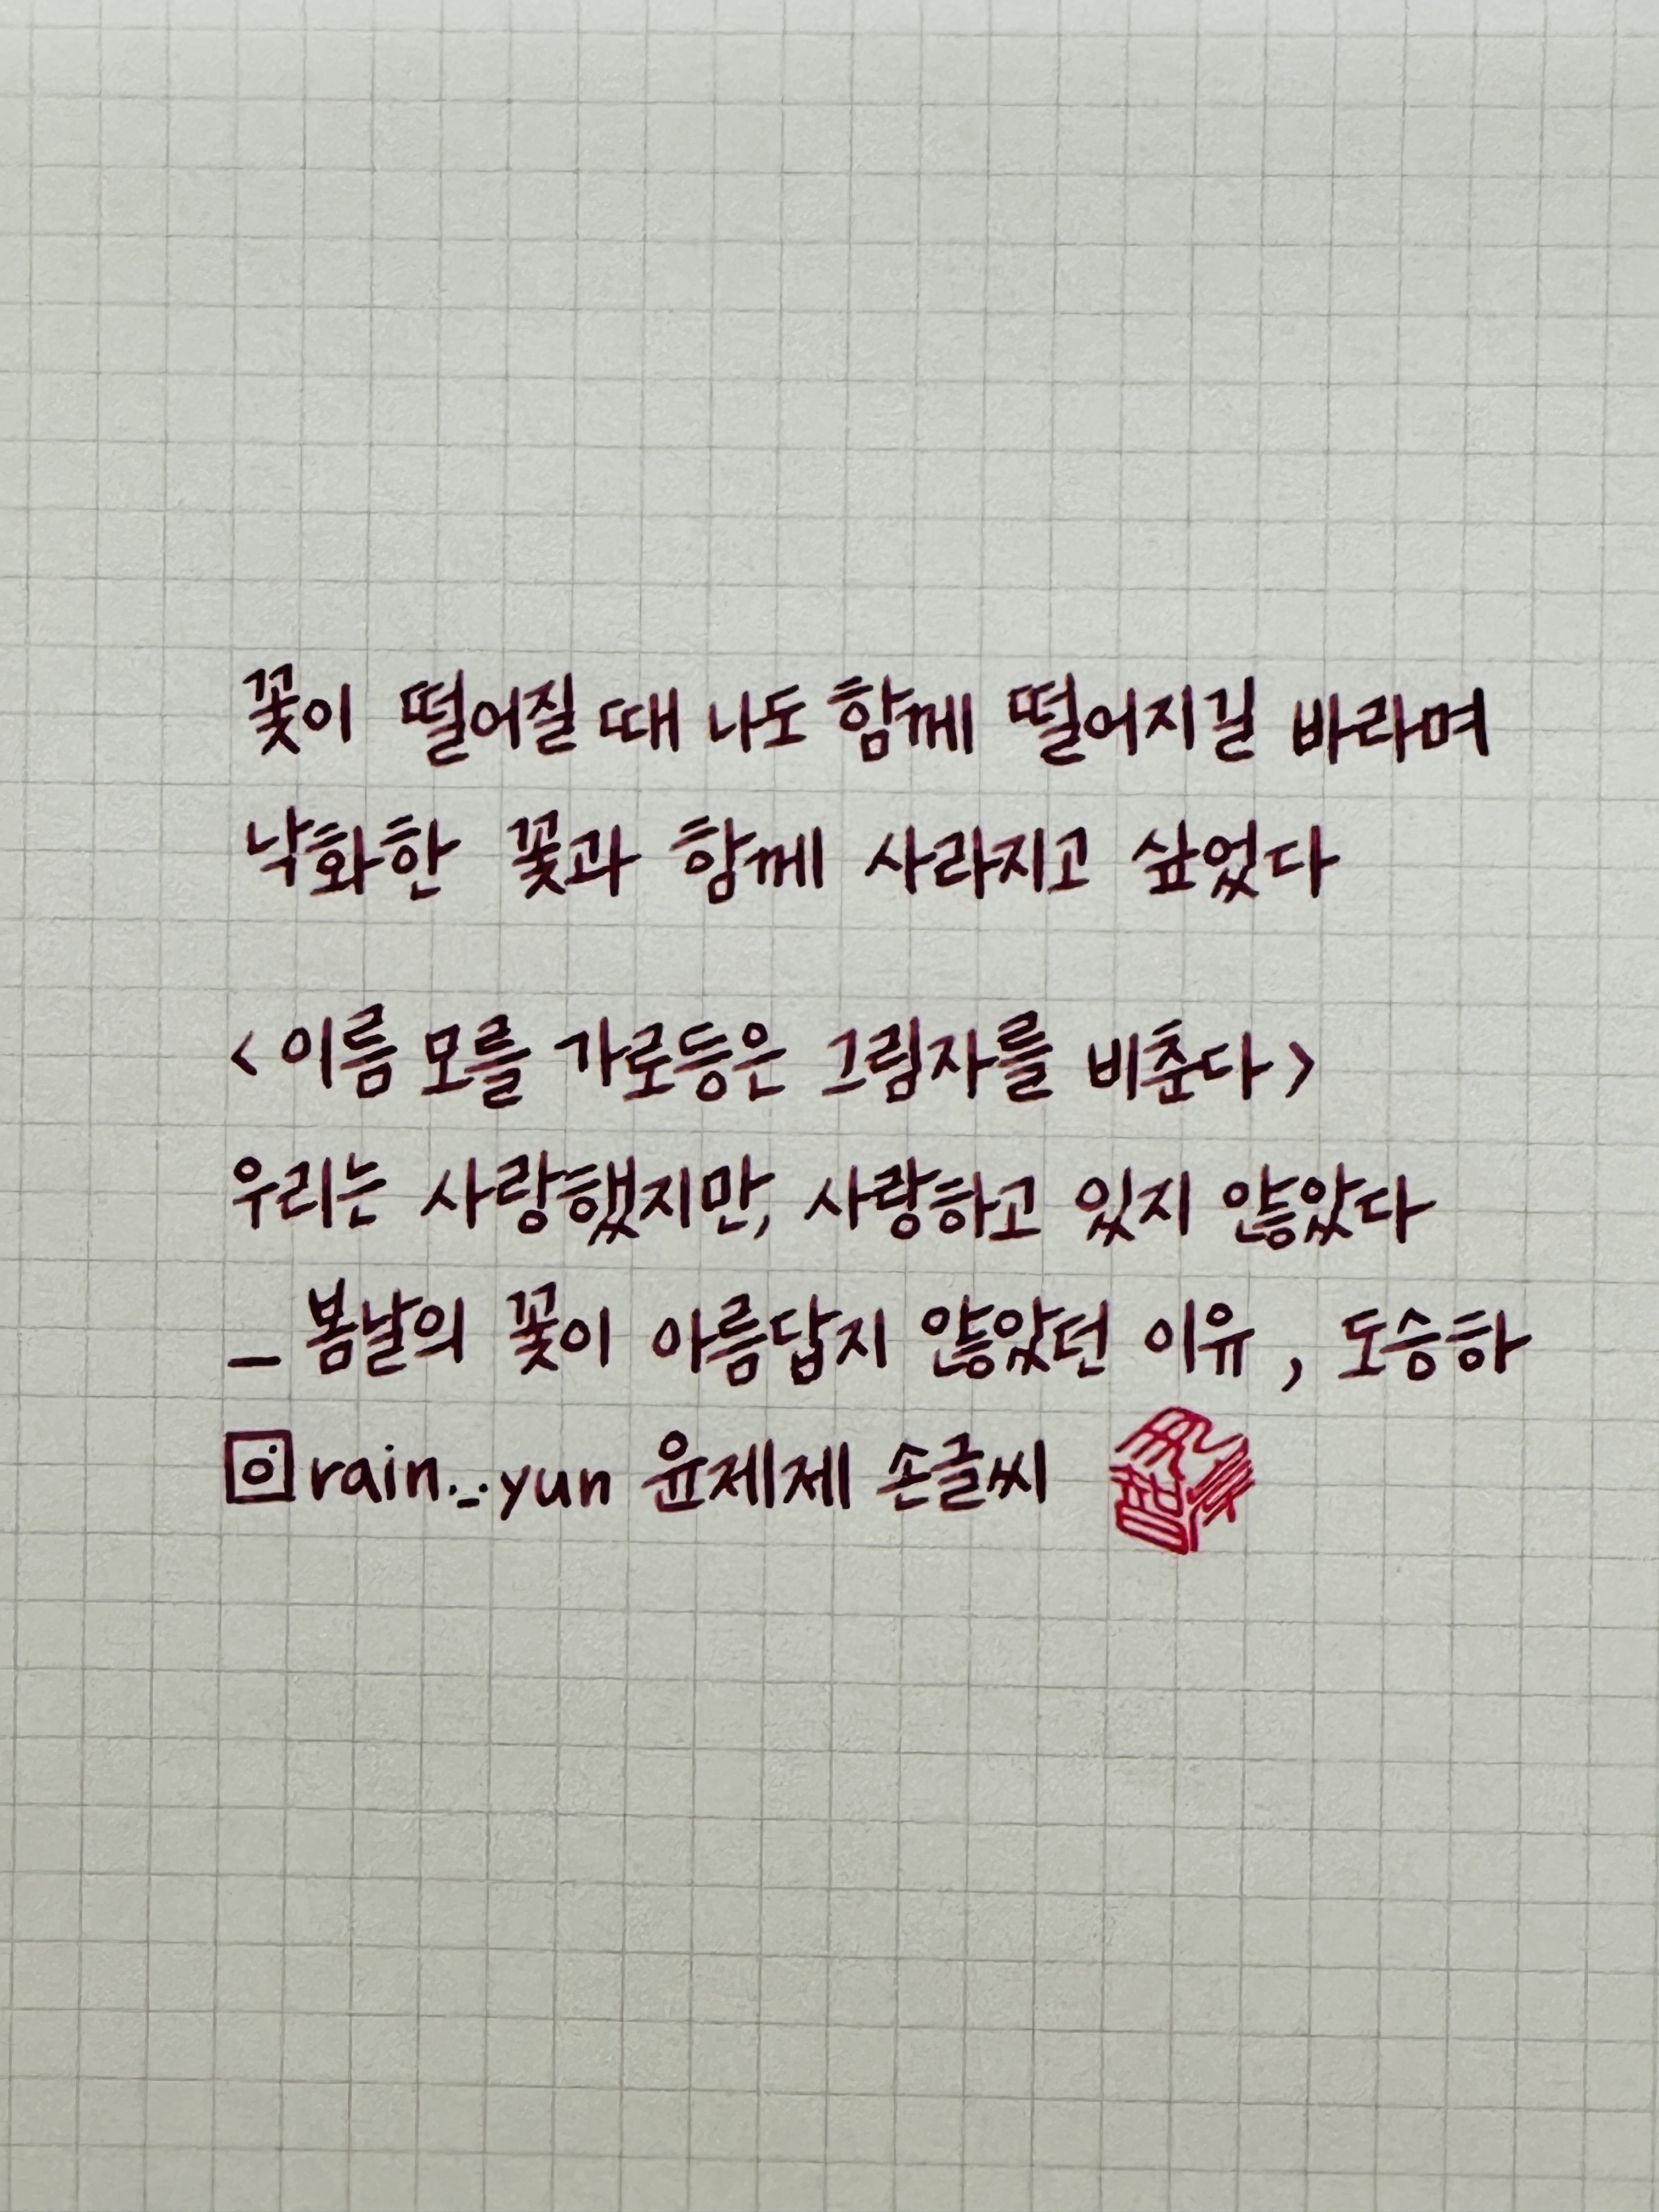 꽃이 떨어질 때 나도 함께 떨어지길 바라며
낙화한 꽃과 함께 사라지고 싶었다
<이름 모를 가로등은 그림자를 비춘다>
우리는 사랑했지만, 사랑하고 있지 않았다
_ 봄날의 꽃이 아름답지 않았던 이유, 도승하
rain._.yun 윤제제 손글씨